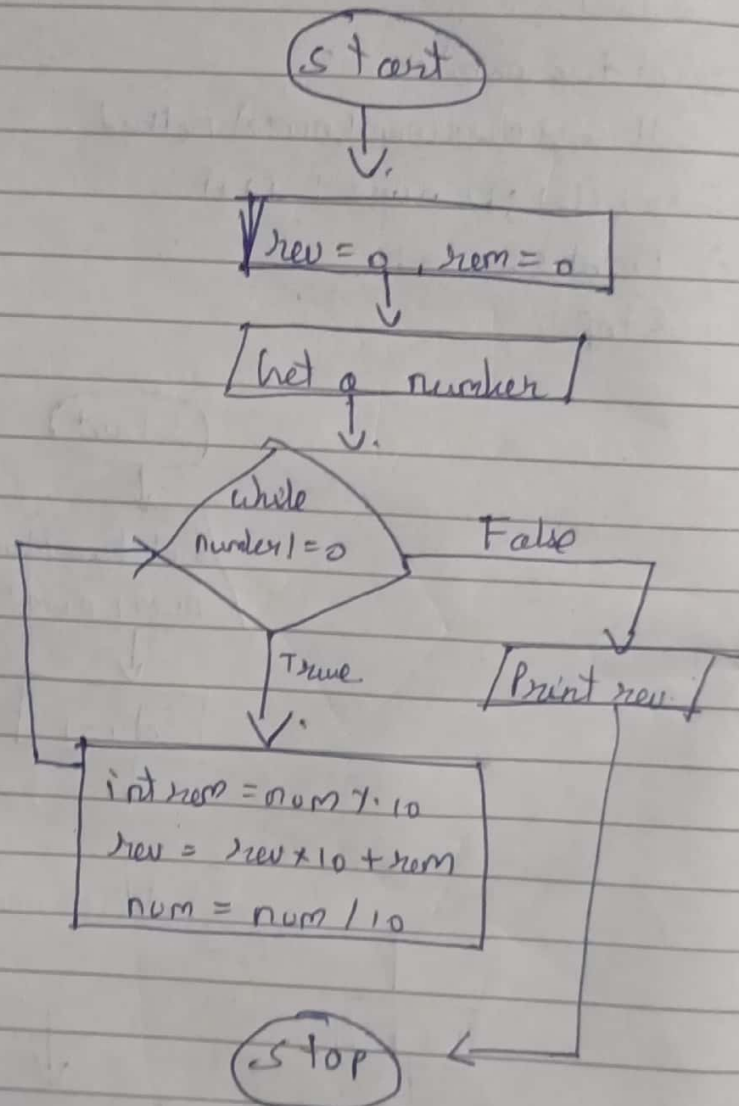 Start
rev = 0, rem = 0
Get a number
while
number != 0
False
True
Print rev
int rem = num % 10
rev = rev * 10 + rem
num = num / 10
Stop